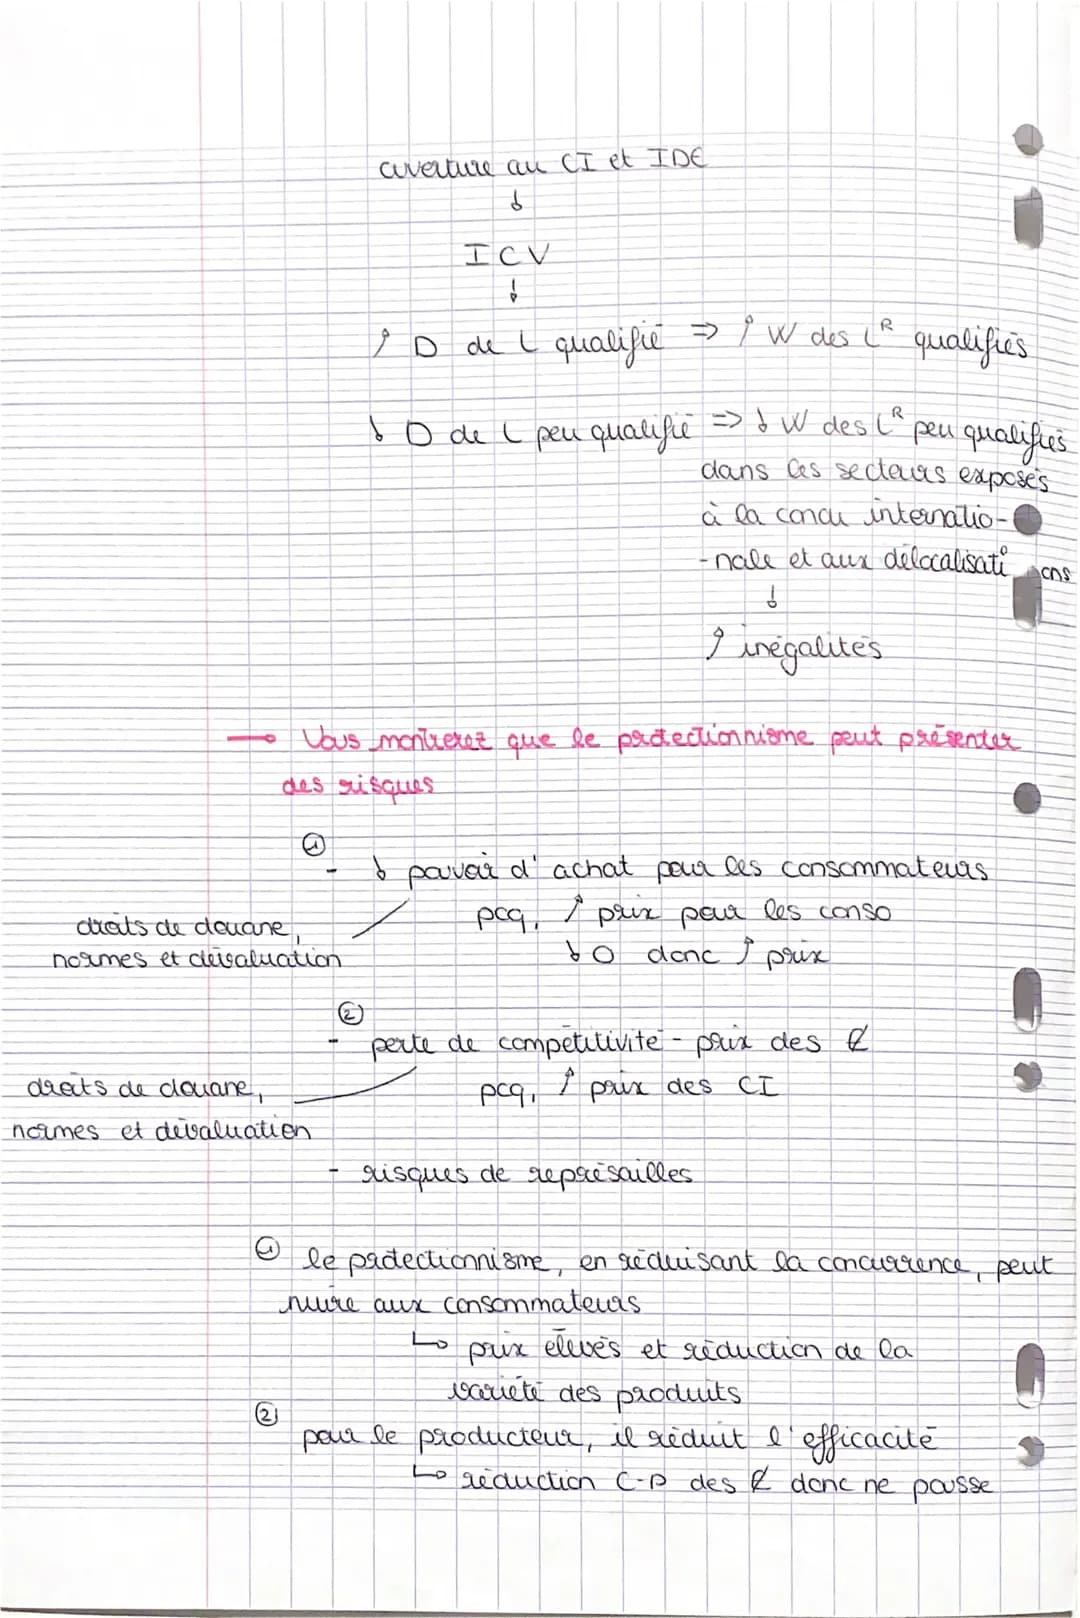 ouverture au CI et IDE
↓
ICV
↓
↑ D de L qualifié => ↑ W des Lᴿ qualifiés
↓ D de L peu qualifié => ↓ W des Lᴿ peu qualifiés
dans les secteurs exposés
à la conc internatio-
-nale et aux délocalisati ons
↓
↑ inégalités
→ Vous montrerez que le protectionnisme peut présenter
des risques
①
- ↓ pouvoir d'achat pour les consommateurs
droits de douane,
normes et dévaluation
pcq, ↑ prix pour les conso
↓ O donc ↑ prix
②
- perte de compétitivité - prix des E̸
droits de douane,
normes et dévaluation
pcq, ↑ prix des CI
- risques de représailles
① le protectionnisme, en réduisant la concurrence, peut
nuire aux consommateurs
↳ prix élevés et réduction de la
variété des produits
②
pour le producteur, il réduit l'efficacité
↳ réduction C-P des E̸ donc ne pousse